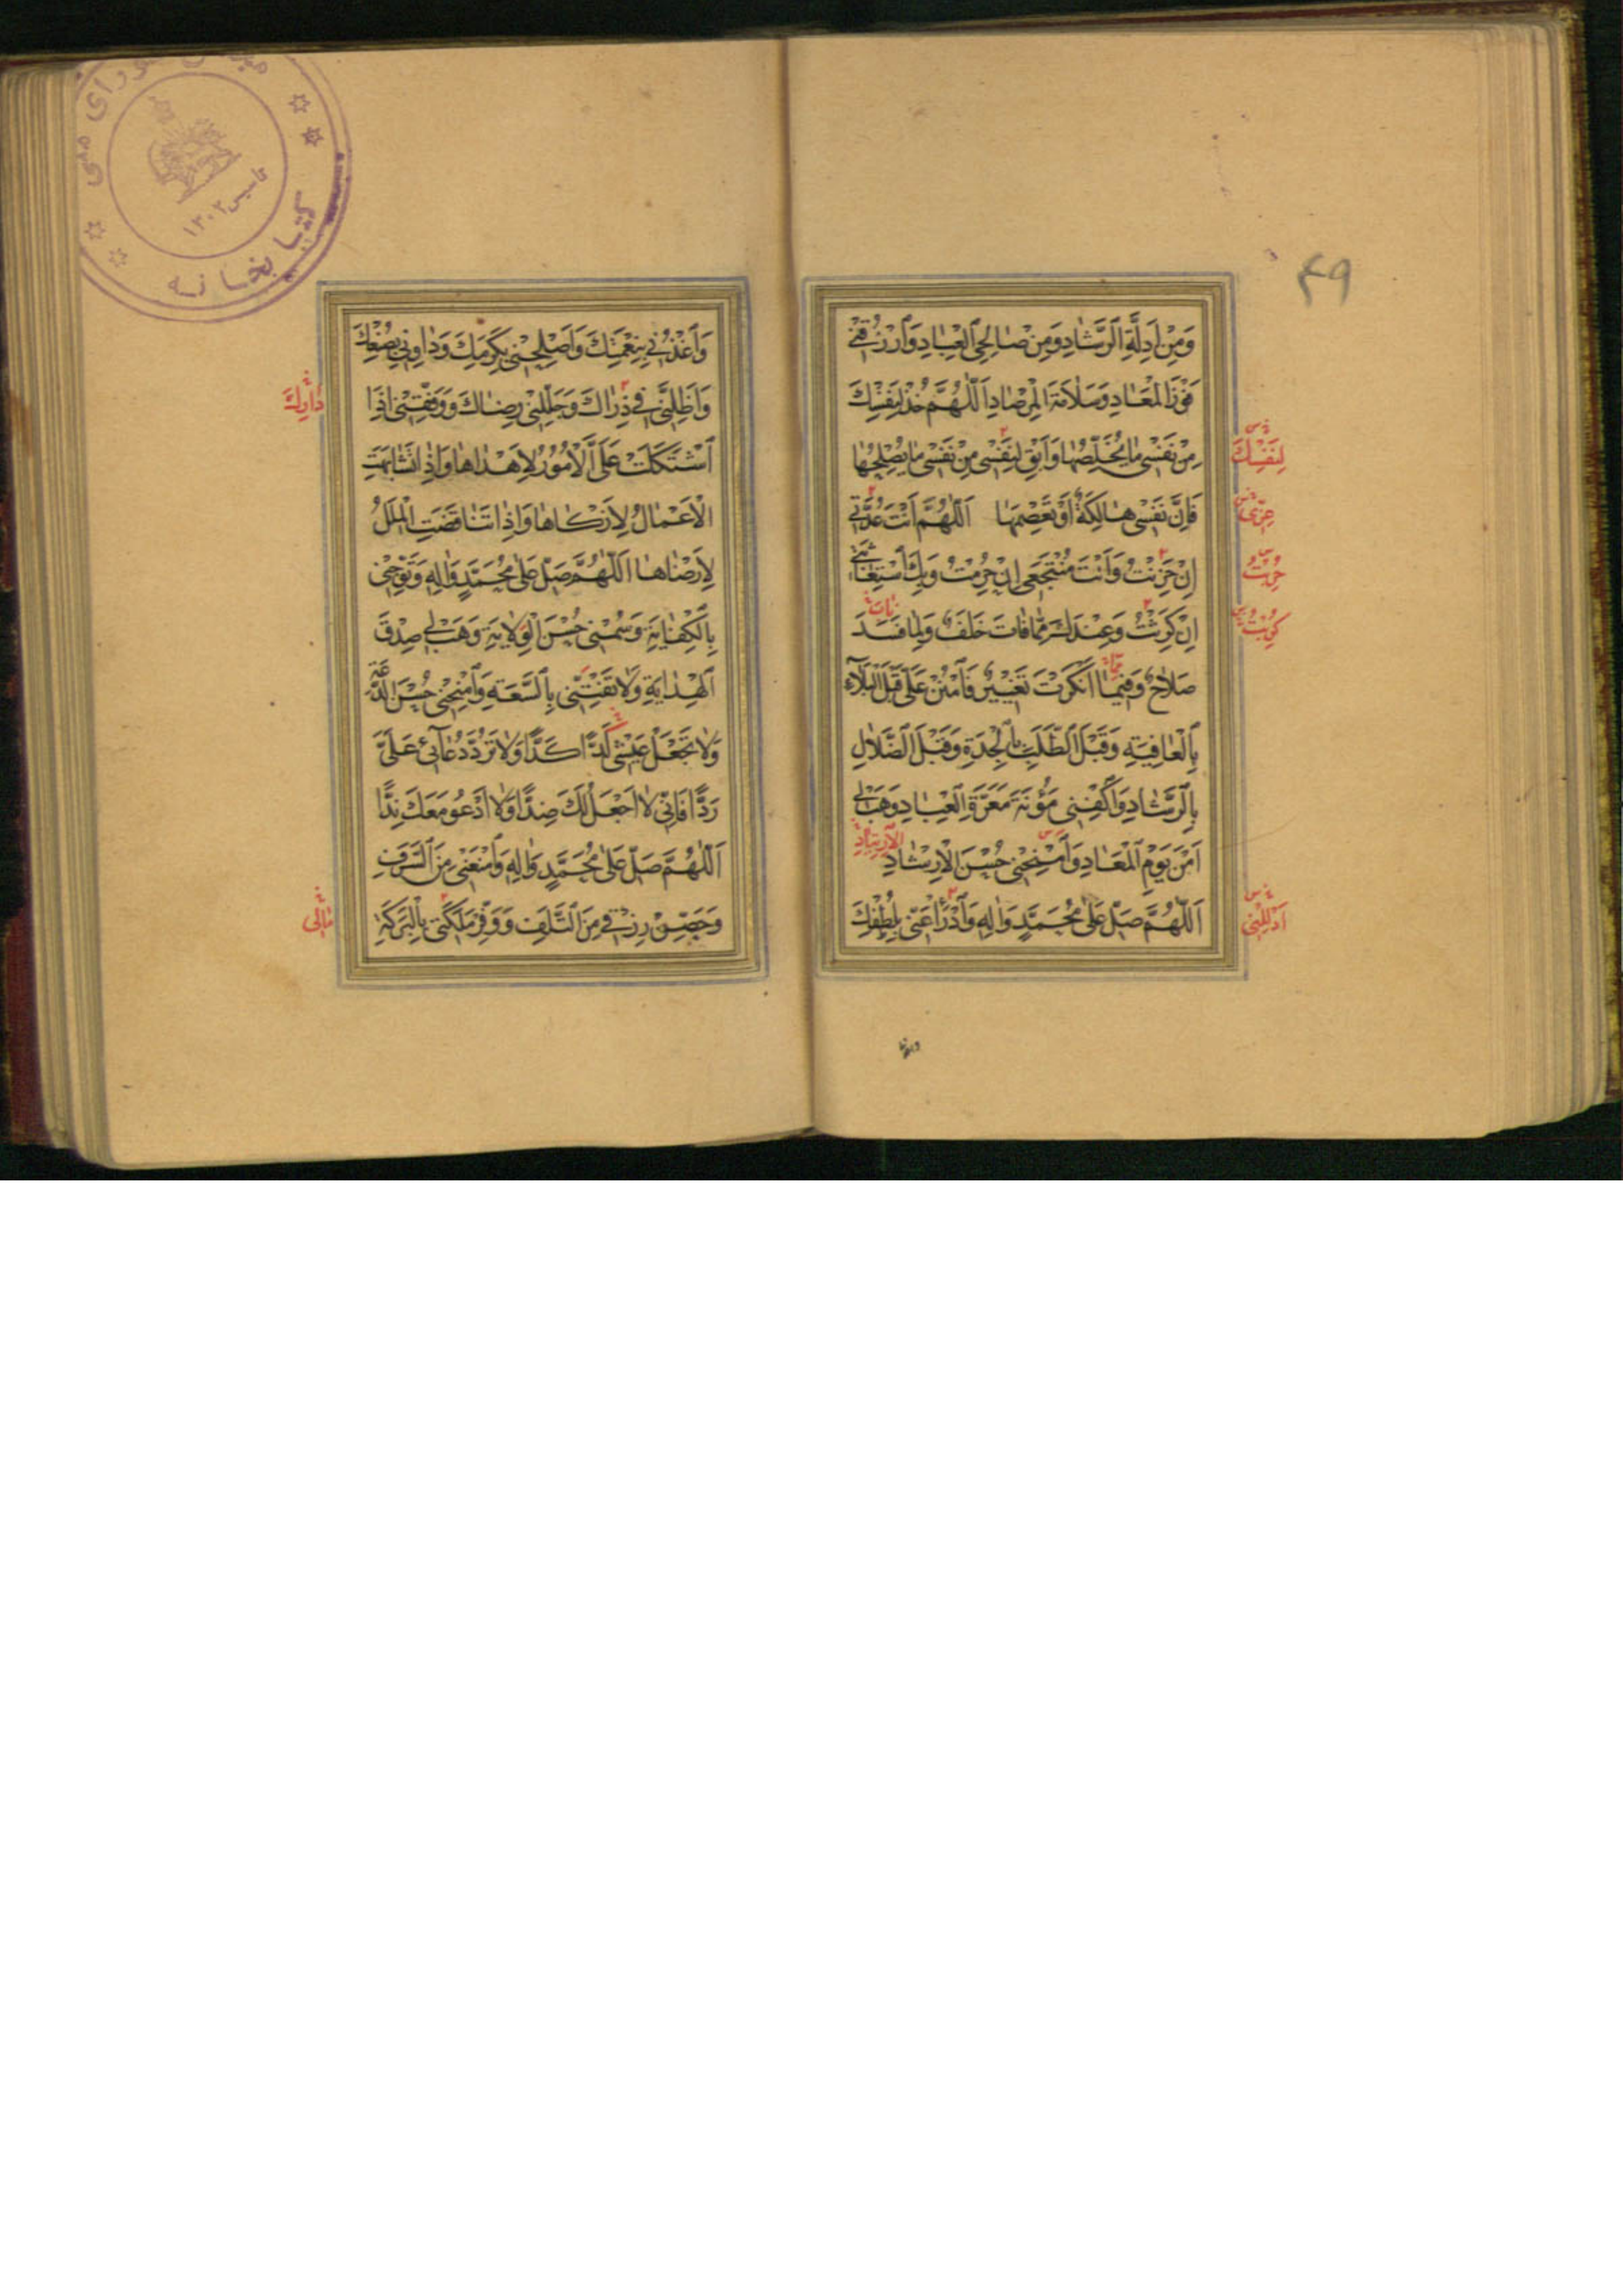 ۴۹
وَمِنْ اَدِلَّةِ الرَّشٰادِ وَمِنْ صٰالِحِى الْعِبٰادِ وَارْزُقْنى
فَوْزَ الْمَعٰادِ وَسَلٰامَةَ الْمِرْصٰادِ اَللّٰهُمَّ خُذْ لِنَفْسِكَ
لِنَفْسِكَ
مِنْ نَفْسى مٰا يُخَلِّصُهٰا وَاَبْقِ لِنَفْسى مِنْ نَفْسى مٰا يُصْلِحُهٰا
فَاِنَّ نَفْسى هٰالِكَةٌ اَوْ تَعْصِمَهٰا اَللّٰهُمَّ اَنْتَ عُدَّتى
اِنْ حَزِنْتُ وَاَنْتَ مُنْتَجَعى اِنْ حُرِمْتُ وَبِكَ اسْتِغٰاثَتى
اِنْ كَرِثْتُ وَعِنْدَكَ مِمّٰا فٰاتَ خَلَفٌ وَلِمٰا فَسَدَ
صَلٰاحٌ وَفيمٰا اَنْكَرْتَ تَغْييرٌ فَامْنُنْ عَلَىَّ قَبْلَ الْبَلٰآءِ
بِالْعٰافِيَةِ وَقَبْلَ الطَّلَبِ بِالْجِدَةِ وَقَبْلَ الضَّلٰالِ
بِالرَّشٰادِ وَاكْفِنى مَؤُنَةَ مَعَرَّةِ الْعِبٰادِ وَهَبْ لى
اَمْنَ يَوْمِ الْمَعٰادِ وَامْنِحْنى حُسْنَ الْاِرْشٰادِ
اَللّٰهُمَّ صَلِّ عَلٰى مُحَمَّدٍ وَاٰلِهِ وَادْرَأْ عَنّى بِلُطْفِكَ
وَاغْذُنى بِنِعْمَتِكَ وَاَصْلِحْنى بِكَرَمِكَ وَدٰاوِنى بِصُنْعِكَ
وَاَظِلَّنى فى ذَرٰاكَ وَجَلِّلْنى رِضٰاكَ وَوَفِّقْنى اِذَا
اشْتَكَلَتْ عَلَىَّ الْاُمُورُ لِاَهْدٰاهٰا وَاِذٰا تَشٰابَهَتِ
الْاَعْمٰالُ لِاَزْكٰاهٰا وَاِذٰا تَنٰاقَضَتِ الْمِلَلُ
لِاَرْضٰاهٰا اَللّٰهُمَّ صَلِّ عَلٰى مُحَمَّدٍ وَاٰلِهِ وَتَوِّجْنى
بِالْكِفٰايَةِ وَسُمْنى حُسْنَ الْوِلٰايَةِ وَهَبْ لى صِدْقَ
الْهِدٰايَةِ وَلٰا تَفْتِنّى بِالسَّعَةِ وَامْنِحْنى حُسْنَ الدَّعَةِ
وَلٰا تَجْعَلْ عَيْشى كَدًّا كَدًّا وَلٰا تَرُدَّ دُعٰآئى عَلَىَّ
رَدًّا فَاِنّى لٰا اَجْعَلُ لَكَ ضِدًّا وَلٰا اَدْعُو مَعَكَ نِدًّا
اَللّٰهُمَّ صَلِّ عَلٰى مُحَمَّدٍ وَاٰلِهِ وَامْنَعْنى مِنَ السَّرَفِ
وَحَصِّنْ رِزْقى مِنَ التَّلَفِ وَوَفِّرْ مَلَكَتى بِالْبَرَكَةِ
كتابخانه
تاسيس ۱۳۰۲